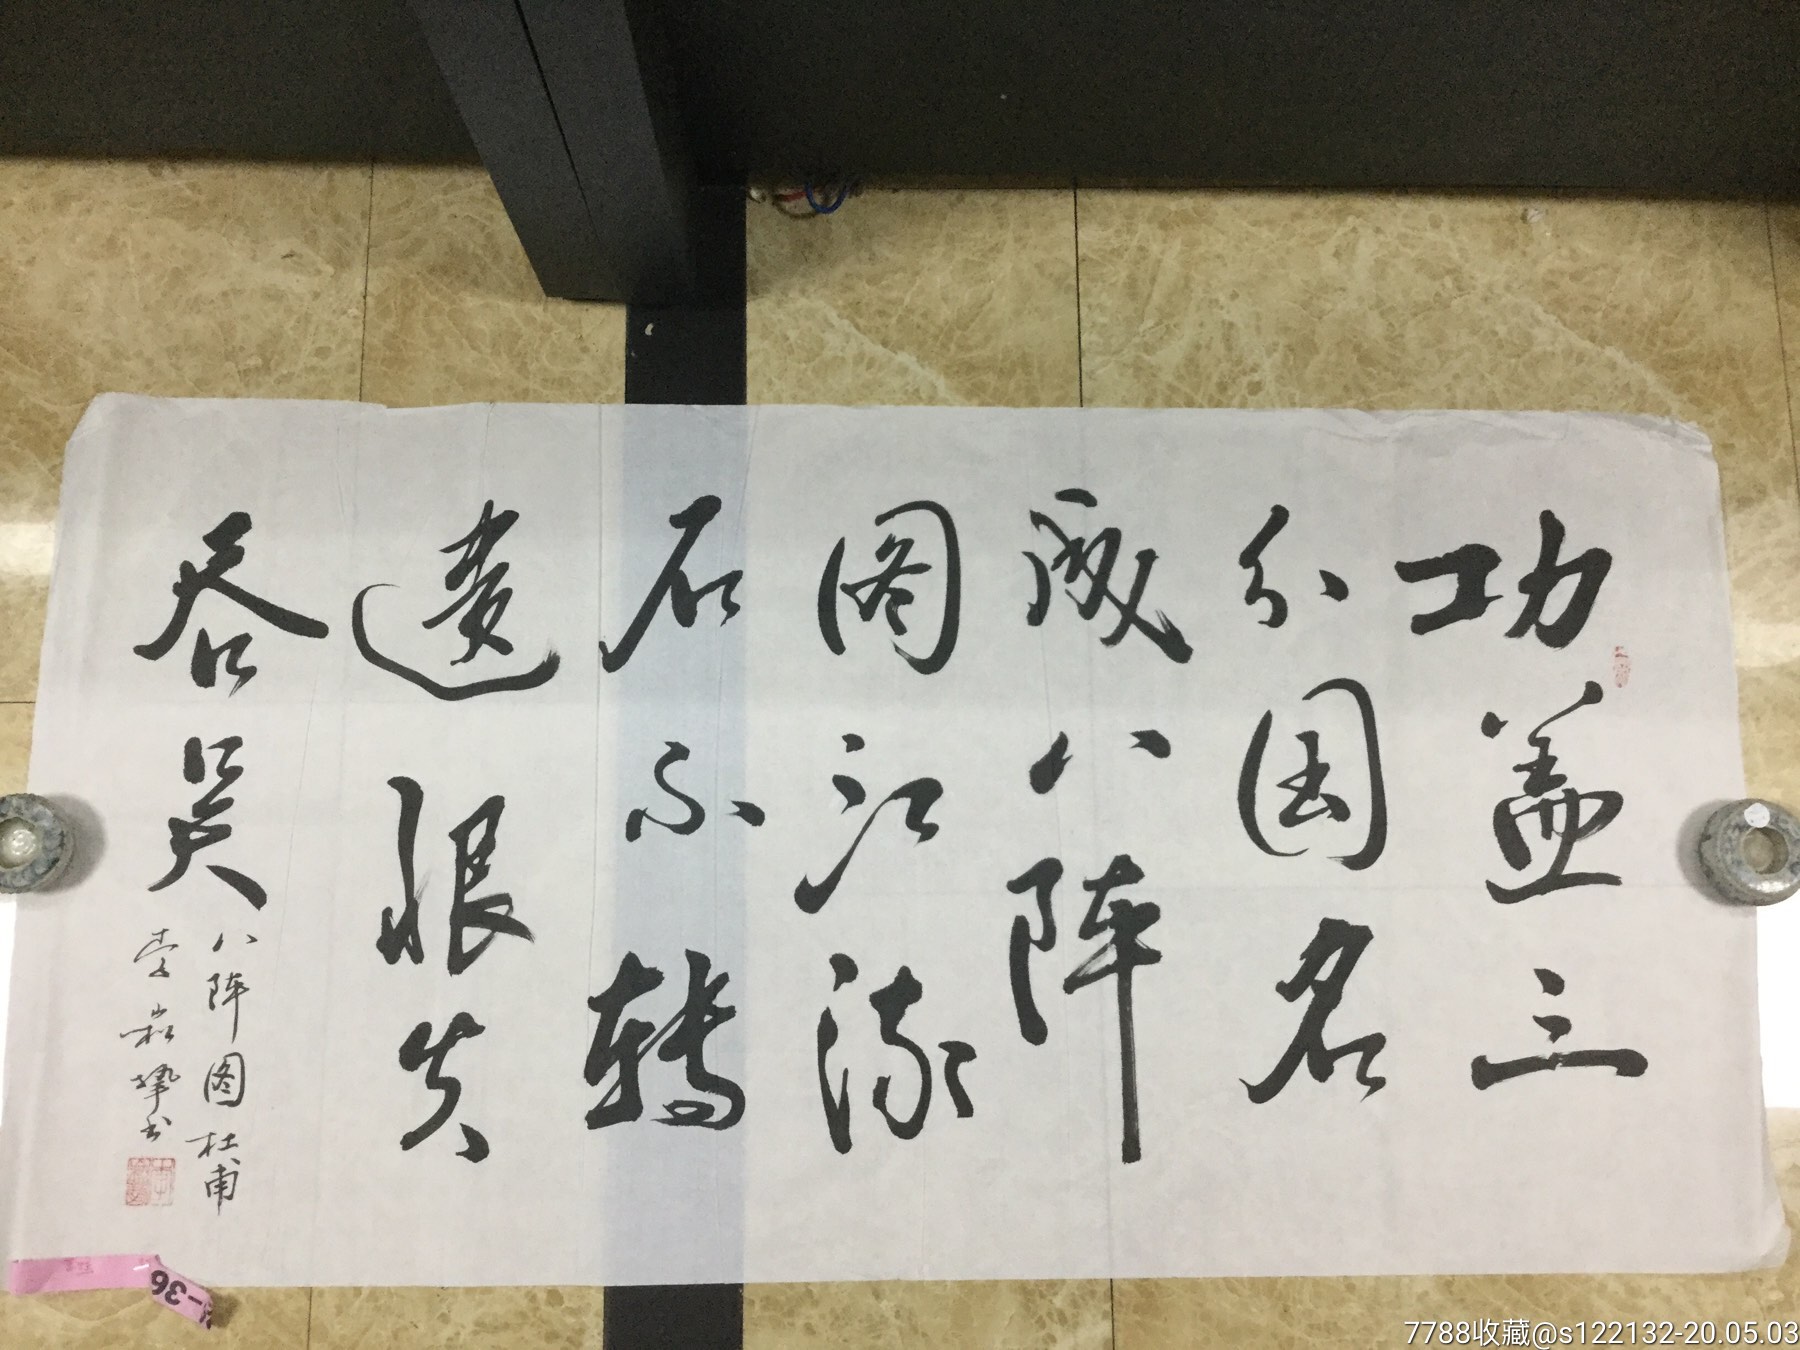 功盖三
分国名
成八阵
图江流
石不转
遗恨失
吞吴
八阵图 杜甫
书
36
7788收藏@s122132-20.05.03